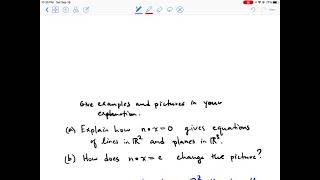 11:35 PM Sat Sep 19
Give examples and pictures in your
explanation.
(a) Explain how n•x=0 gives equations
of lines in ℝ² and planes in ℝ³.
(b) How does n•x=c change the picture?